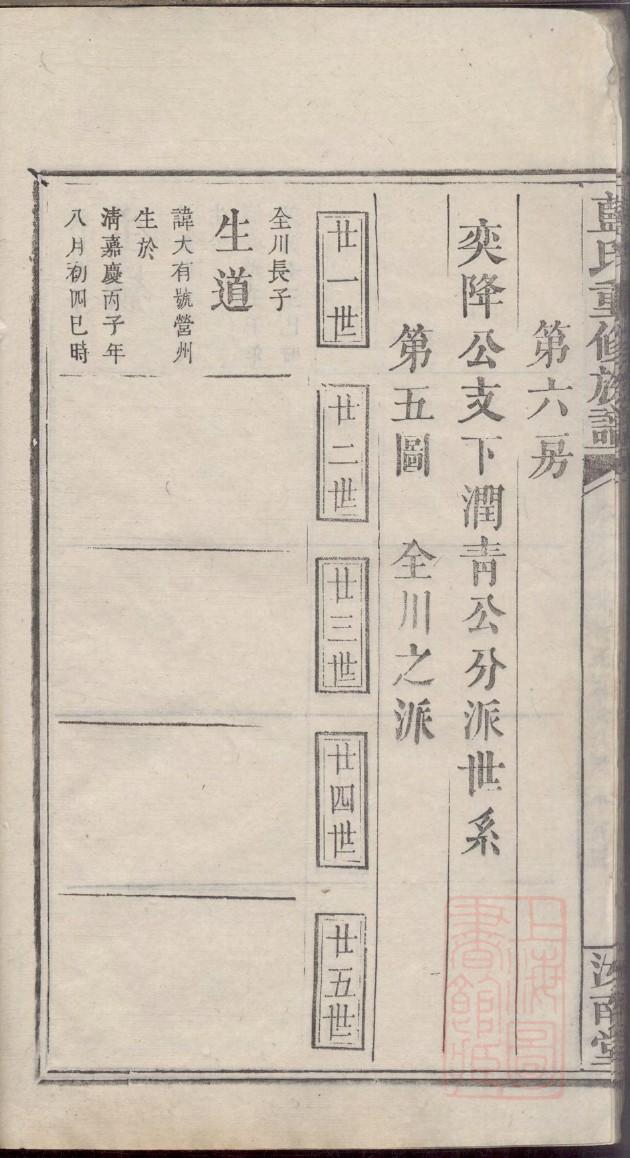 藍氏重修族譜
汝南堂
第六房
奕降公支下潤青公分派世系
第五圖 全川之派
廿一世
廿二世
廿三世
廿四世
廿五世
全川長子
生道
諱大有號營州
生於
清嘉慶丙子年
八月初四巳時
上海圖
書館藏